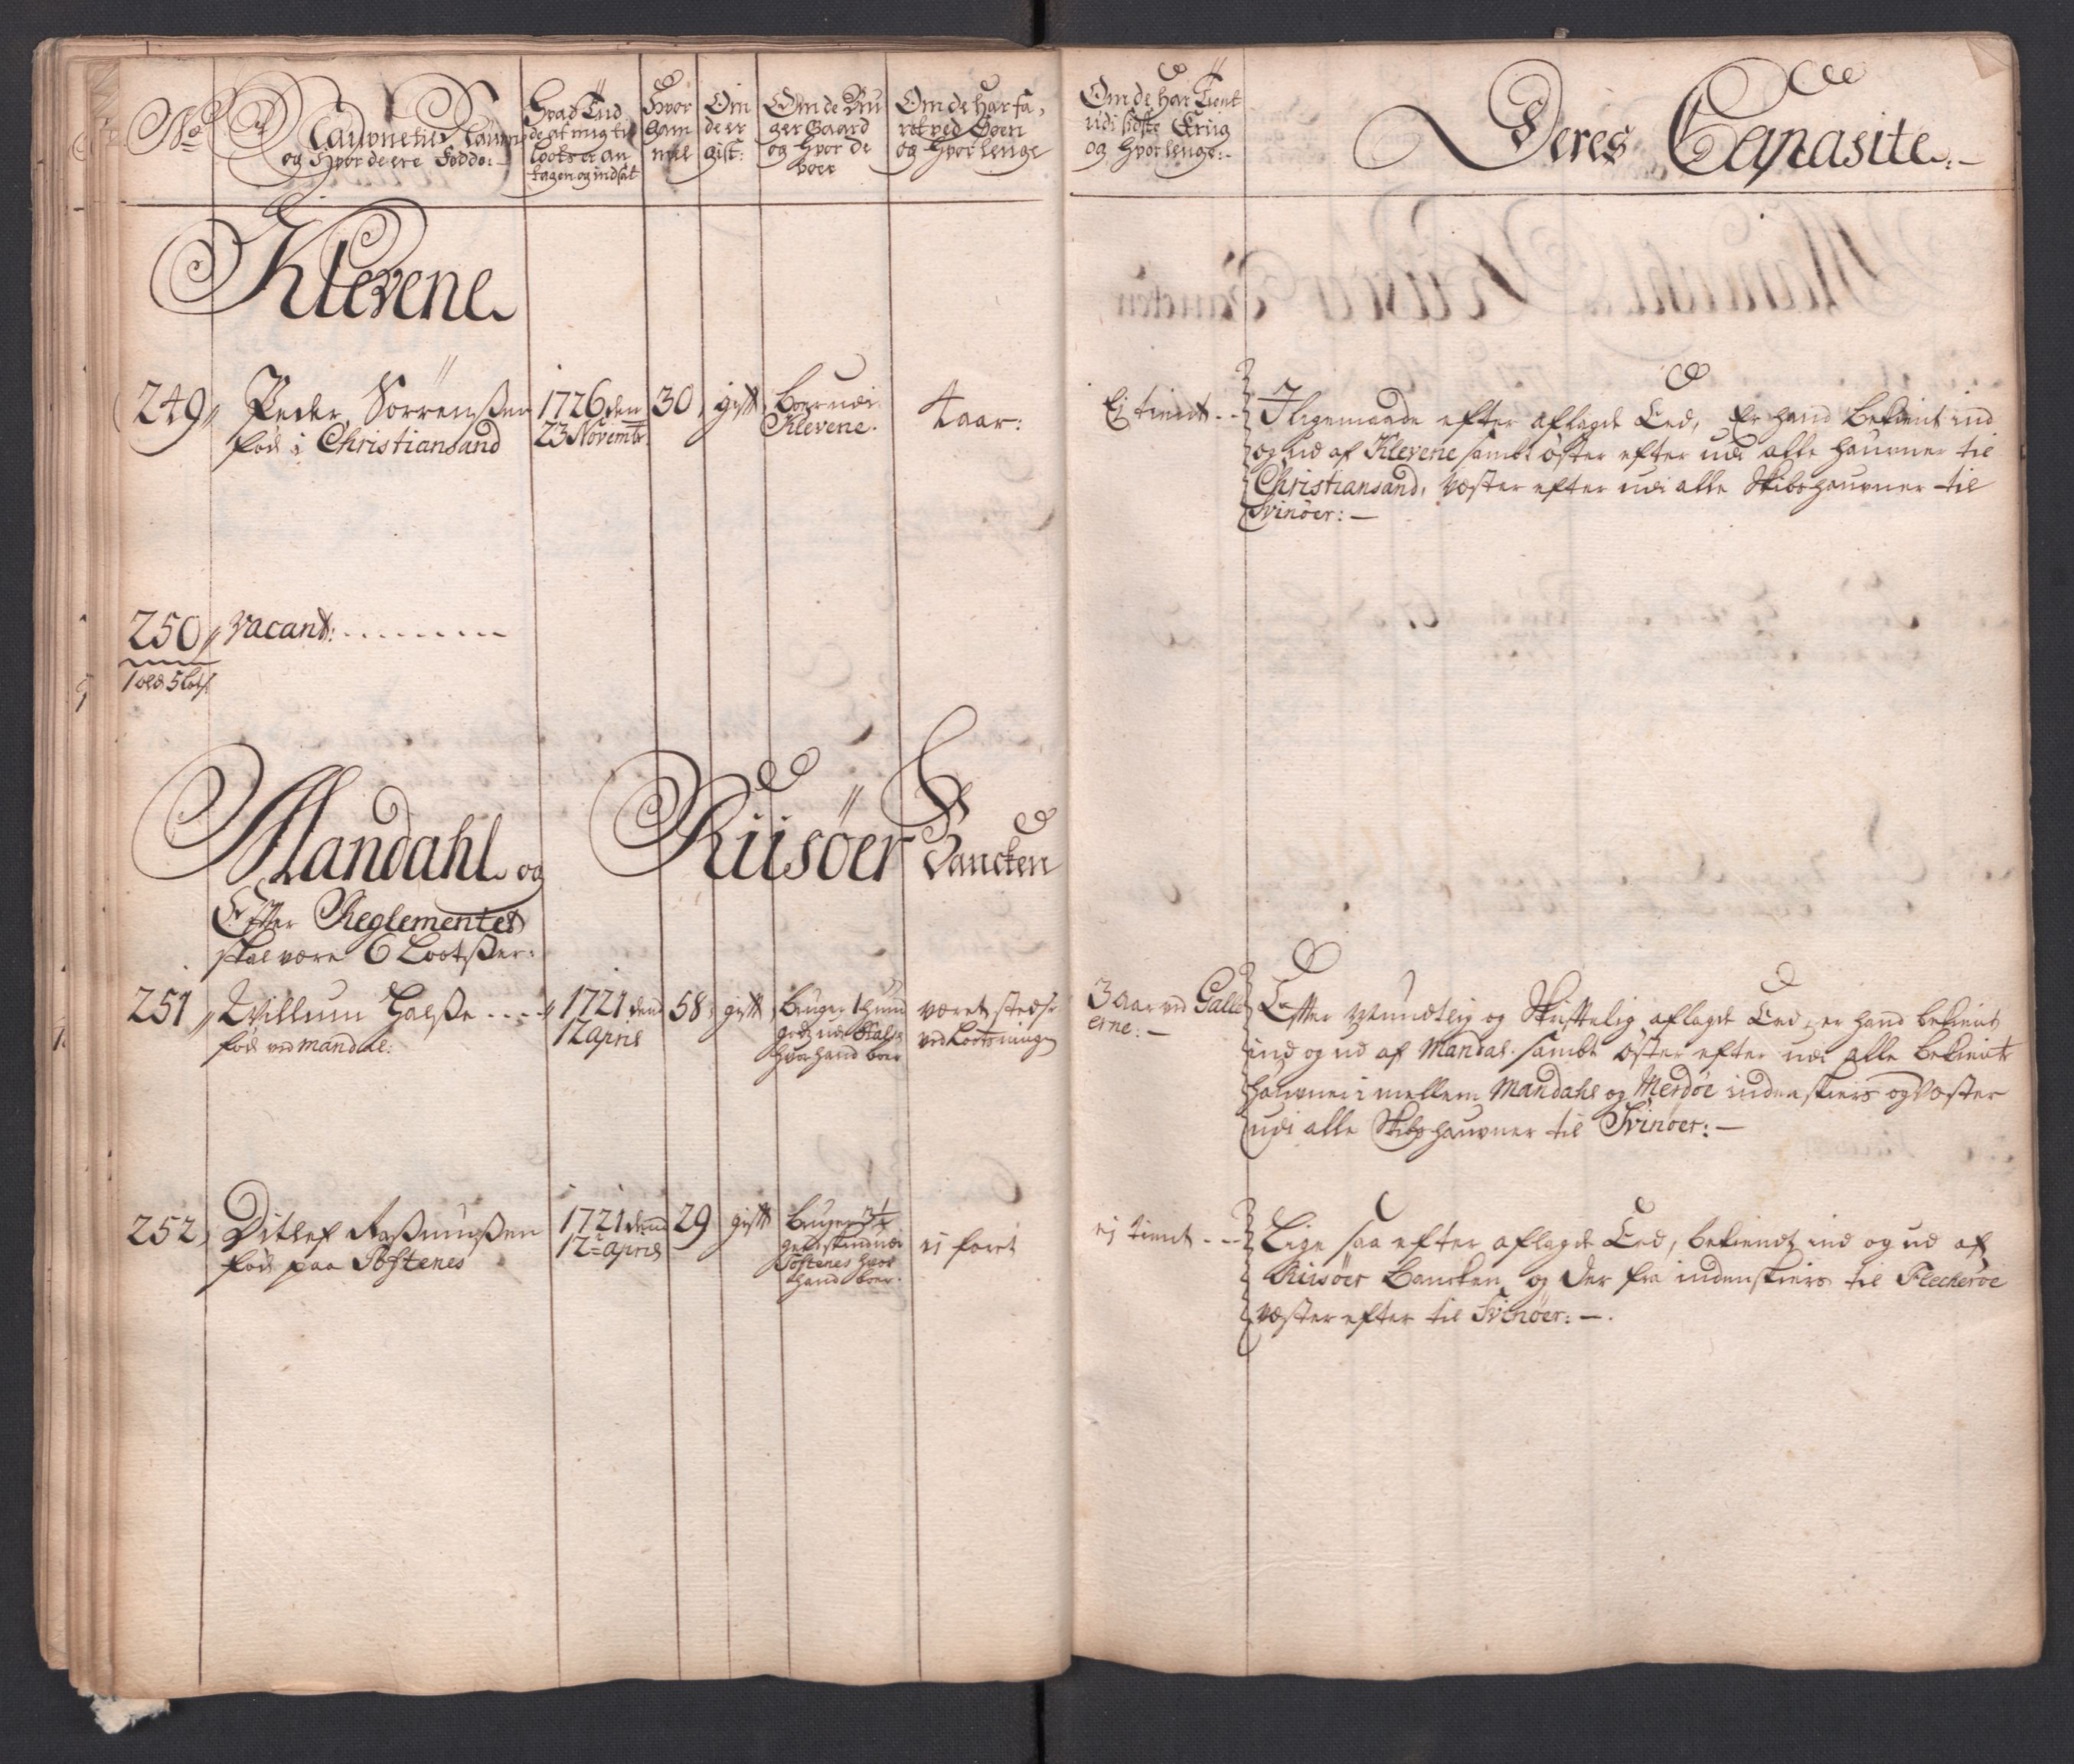 No
Laupnetil Laupn
og Hvor de ere Fødde:
Hvad Tiid
de af mig til
Loots er an
tagen og indsat
Hvor
Gam
mel
Om
de er
gift:
Om de Bru
ger Gaard
og Hvor de
boer
Om de Har fa,
ret ved Søen
og Hvor lenge
Om de Har Tient
udi sidste Krig
og Hvor lenge:-
Deres Capasite:-
Klevene
249
Peder Sörrensßen
fød i Christiansand
1726 den
23 Novembr
30
gift
Boer udi
Klevene.
4 aar:
Ej tient - -
I ligemaade efter aflagde Eed, Er hand bekient ind
og ud af Klevene sambt öster efter udi alle haufner til
Christiansand, Væster efter udi alle Skibs haufner til
Svinöer: -
250
Vacant: - - - - - - - -
1 old 5 Lots
Mandahl og Riisöer Bancken
Efter Reglementet
skal være 6 Lootsßer:
251
Willum Halsße - - - -
fød ved Mandal:
1721 den
12 April
58
gift
Bruger 1 Huud
godz udi Halse
hvor hand boer
været stedse
ved Lootsningen
3 Aar ved Galle
erne: -
Efter Mundtlig og Skriftelig aflagde Eed, er hand bekient
ind og ud af Mandal. sambt öster efter udi alle bekiente
haufner i mellem Mandahl og Merdöe indenskiers og Væster
udi alle Skibs haufner til Svinöer: -
252
Ditlef Rasmusßen
fød paa Töftenes
1721 dend
12 April
29
gift
Bruger 3 1/2
gieteskind udi
Töftenes hvor
hand boer.
ej faret
ej tient - - -
Lige saa efter aflagde Eed, bekiendt ind og ud af
Riisöer Bancken og der fra indenskiers til Fleckeröe
væster efter til Svinöer: -